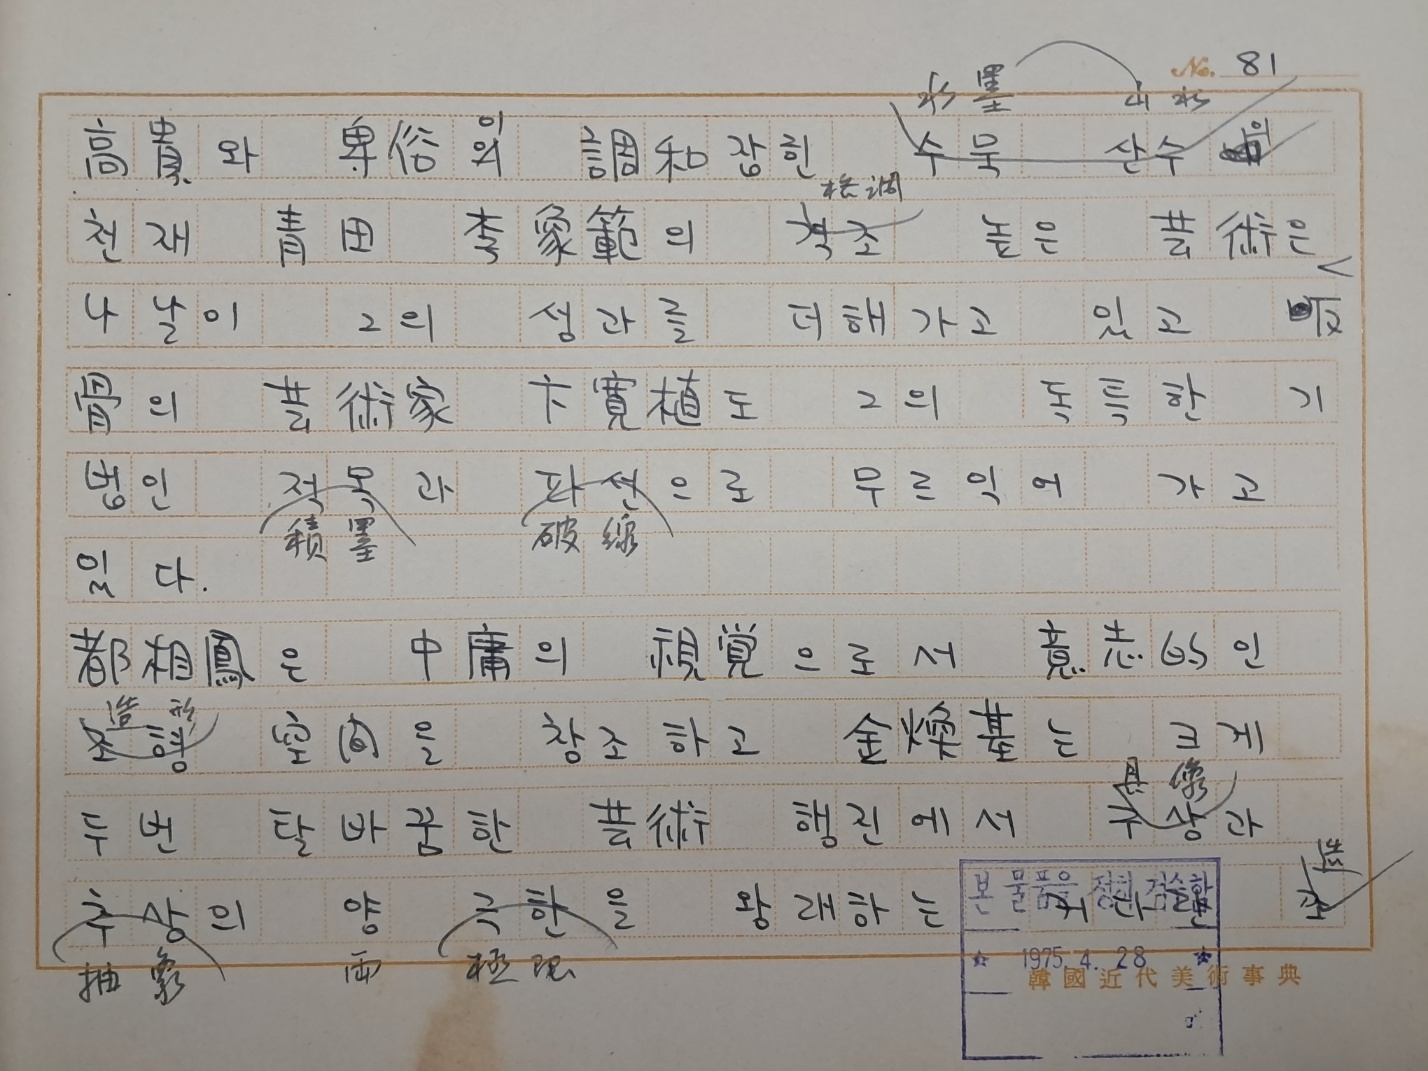 No. 81
水墨 山水
高貴와 卑俗의 調和장한 수묵 산수의
格調
천재 青田 李象範의 격조 높은 芸術은
나날이 그의 성과를 더해가고 있고
骨의 芸術家 卞寬植도 그의 독특한 기
법인 적묵과 파선으로 무르익어 가고
積墨 破線
있다.
都相鳳은 中庸의 視覚으로서 意志的인
造形
조형 空间을 창조하고 金煥基는 크게
具像
두번 탈바꿈한 芸術 행진에서 구상과
造
추상의 양 극한을 왕래하는 조
抽象 両 極限
본 물품을 정히 검술함
☆ 1975. 4. 28 ☆
韓國近代美術事典